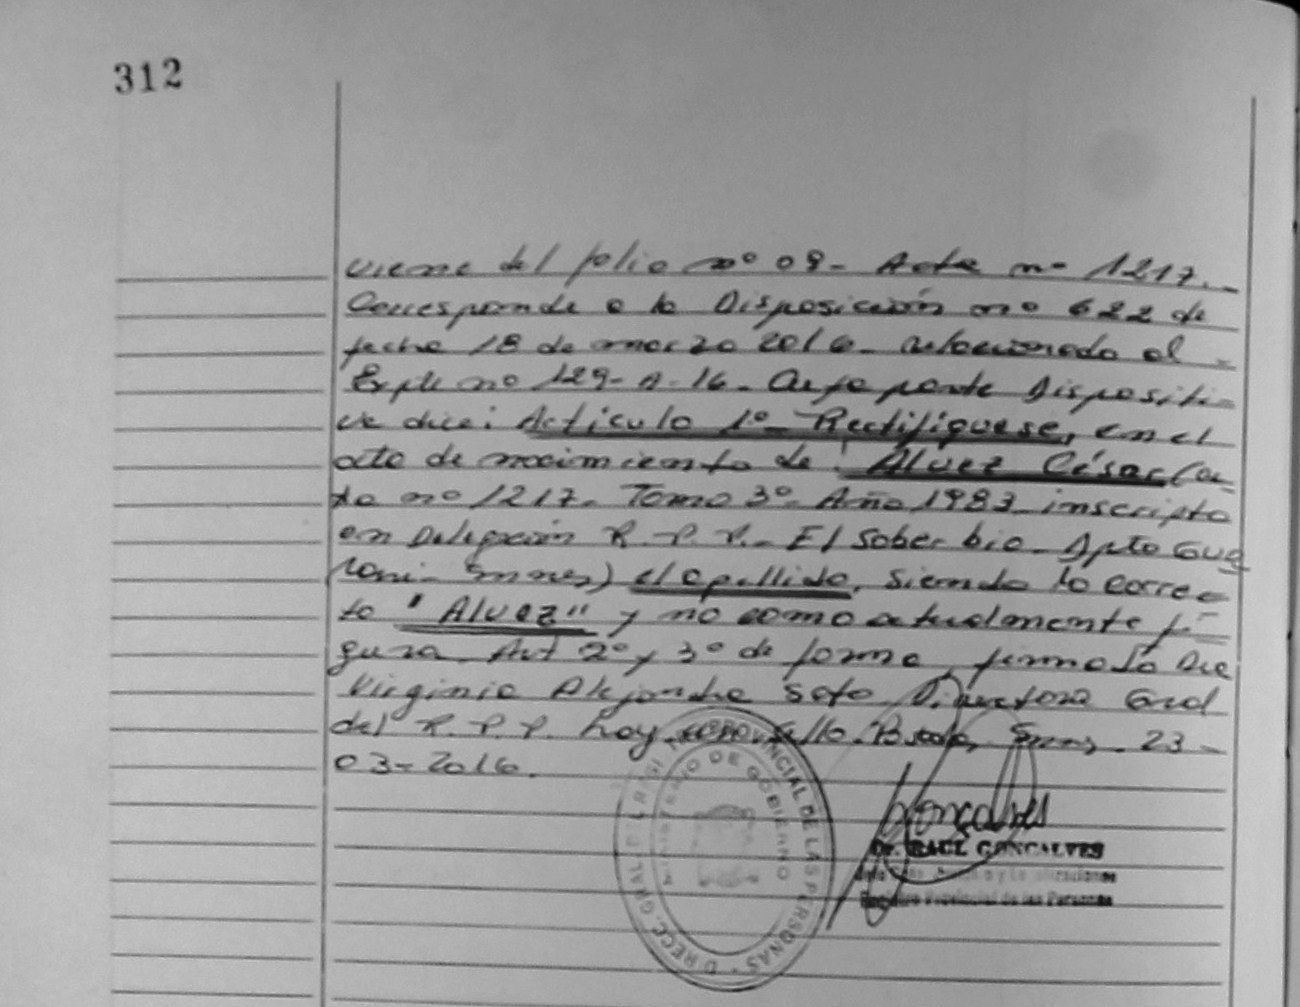 312
viene del folio nº 09- Acta nº 1217.-
Corresponde a la Disposición nº 622 de
fecha 18 de marzo 2016- relacionado al -
Expte nº 129- A- 16- Cuya parte Dispositi-
va dice: Articulo 1º- Rectifiquese, en el
acta de nacimiento de: Alvez César (ac-
ta nº 1217- Tomo 3º- Año 1983 inscripta
en Delegación R.P.P.- El Soberbio- Dpto Gua
rani- Mnes) el apellido, siendo lo correc-
to "Alvez" y no como actualmente fi-
gura- Art 2º y 3º de forma, firma la Dra
Virginia Alejandra Soto Directora Gral
del R.P.P. hoy sello. Mnes, 23-
03-2016.
DIRECC. GRAL. DEL REGISTRO PROVINCIAL DE LAS PERSONAS
MINISTERIO DE GOBIERNO
Goncalves
Dr. RAUL GONCALVES
Registro Provincial de las Personas